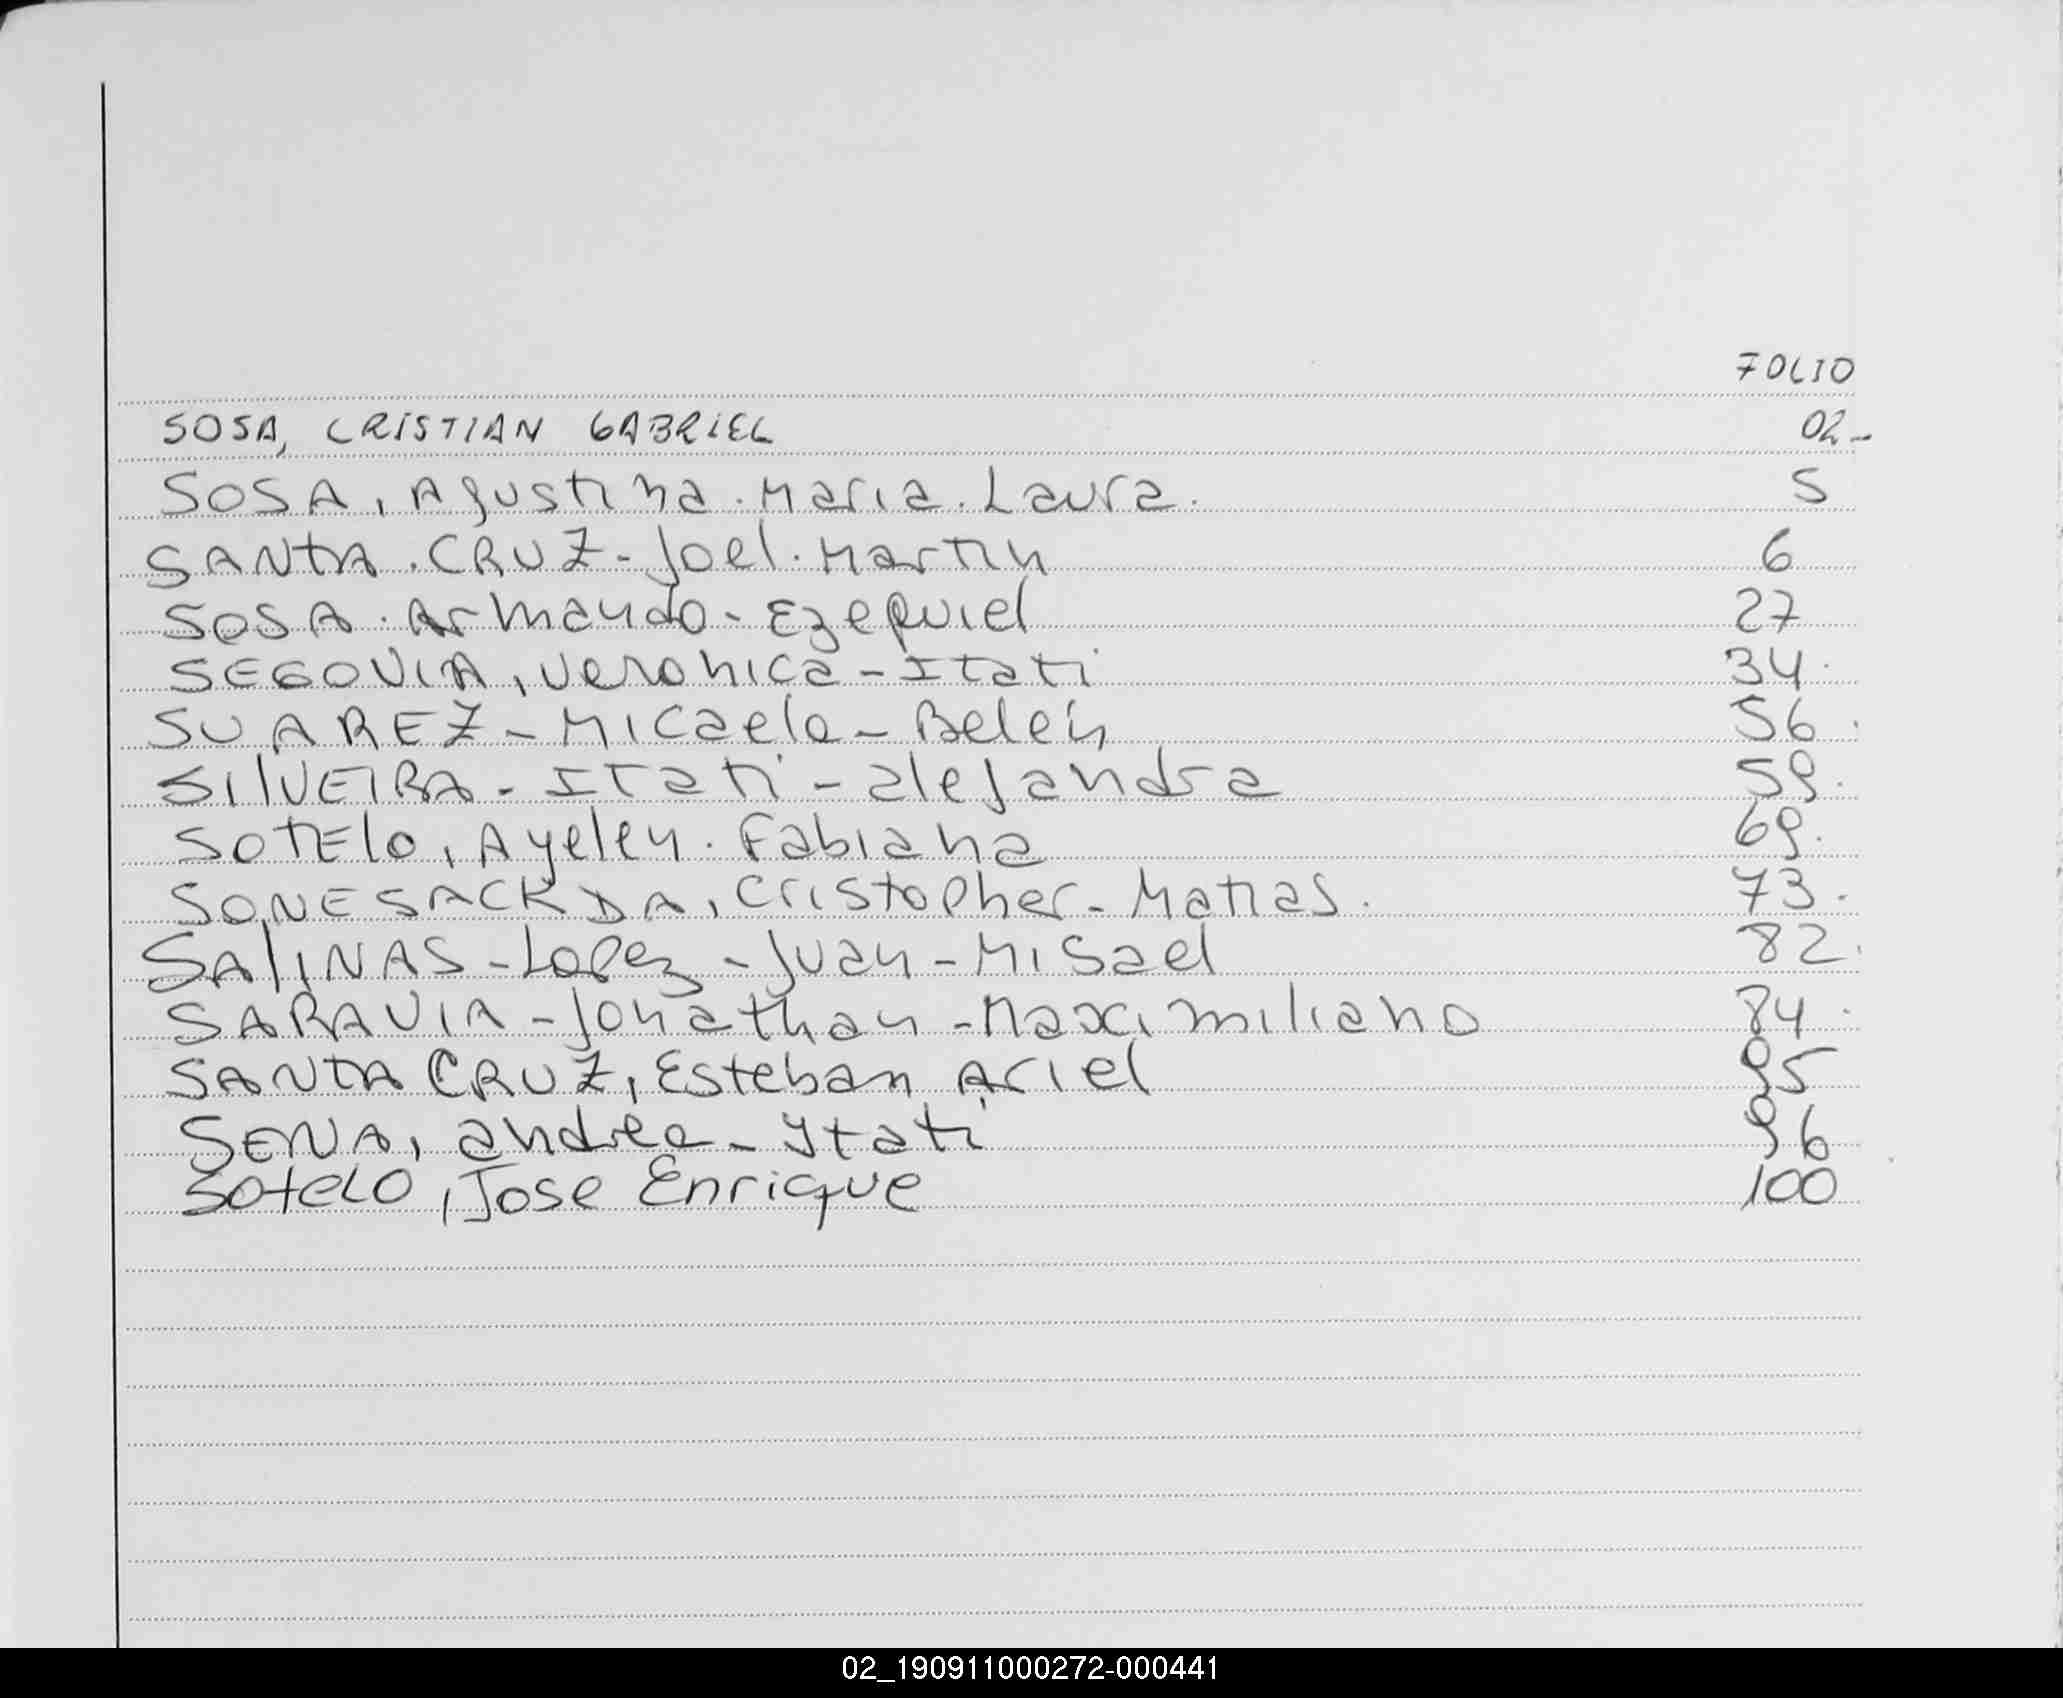 FOLIO
SOSA, CRISTIAN GABRIEL 02-
SOSA, Agustina. Maria. Laura. 5
SANTA. CRUZ - Joel. Martin 6
SOSA. Armando - Ezequiel 27
SEGOVIA, Veronica - Itati 34.
SUAREZ - Micaela - Belén 56.
SIlVEIRA - Itati - alejandra 59.
SOTElo, Ayelen. Fabiana 69.
SONESACKDA, Cristopher - Matias. 73.
SAlINAS - Lopez - Juan - Misael 82.
SARAVIA - Jonathan - Maximiliano 84.
SANTA CRUZ, Esteban Ariel 95
SENA, andrea - Ytati 96
Sotelo, Jose Enrique 100
02_190911000272-000441